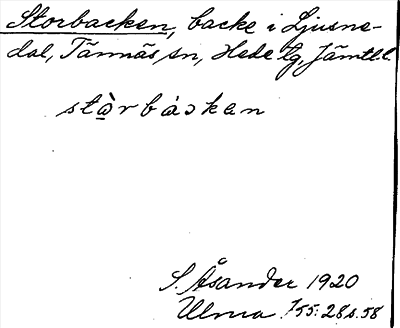 Storbacken, backe i Ljusne-
dal, Tännäs sn, Hede tg, Jämtl. l.
stàrbáckan
S. Åsander 1920
Ulma 155:28 s. 58